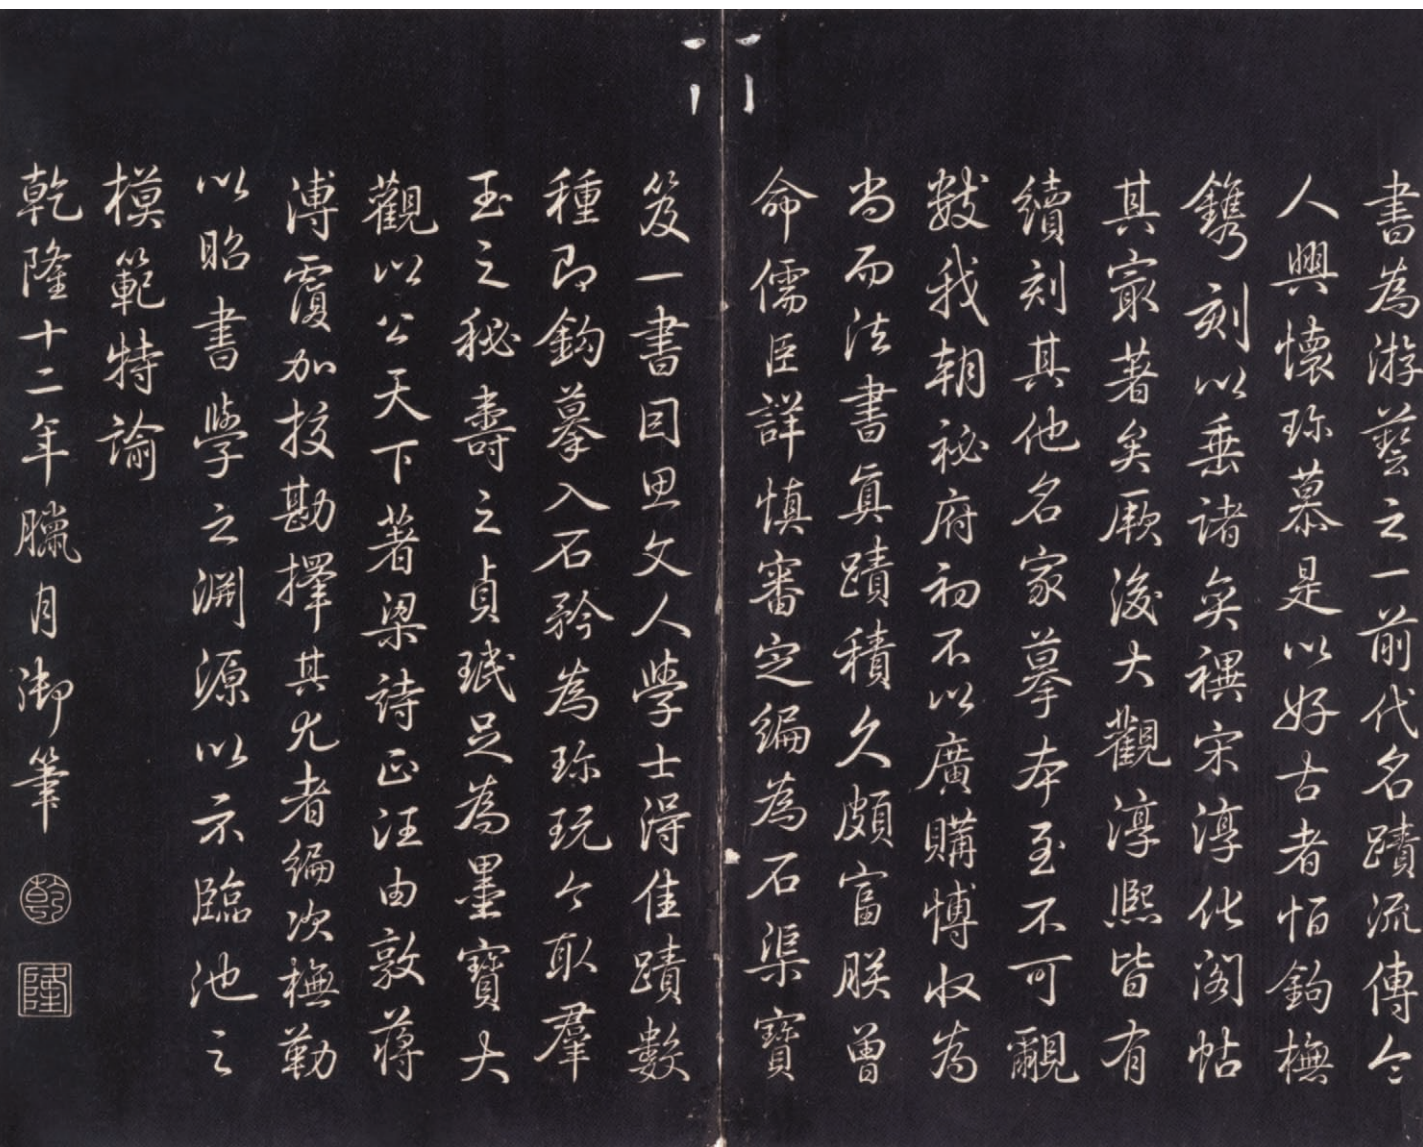 書為游藝之一前代名蹟流傳令
人興懷珎慕是以好古者恒鉤橅
鐫刻以垂諸奕禩宋淳化閣帖
其冣著矣厥後大觀淳熙皆有
續刻其他名家摹本至不可覼
數我朝祕府初不以廣購博收為
尚而法書真蹟積久頗富朕曾
命儒臣詳慎審定編為石渠寶
笈一書因思文人學士得佳蹟數
種即鉤摹入石矜為珎玩今取羣
玉之秘壽之貞珉足為墨寶大
觀以公天下著梁詩正汪由敦蔣
溥覆加挍勘擇其尤者編次橅勒
以昭書學之淵源以示臨池之
模範特諭
乾隆十二年臘月御筆
乾
隆